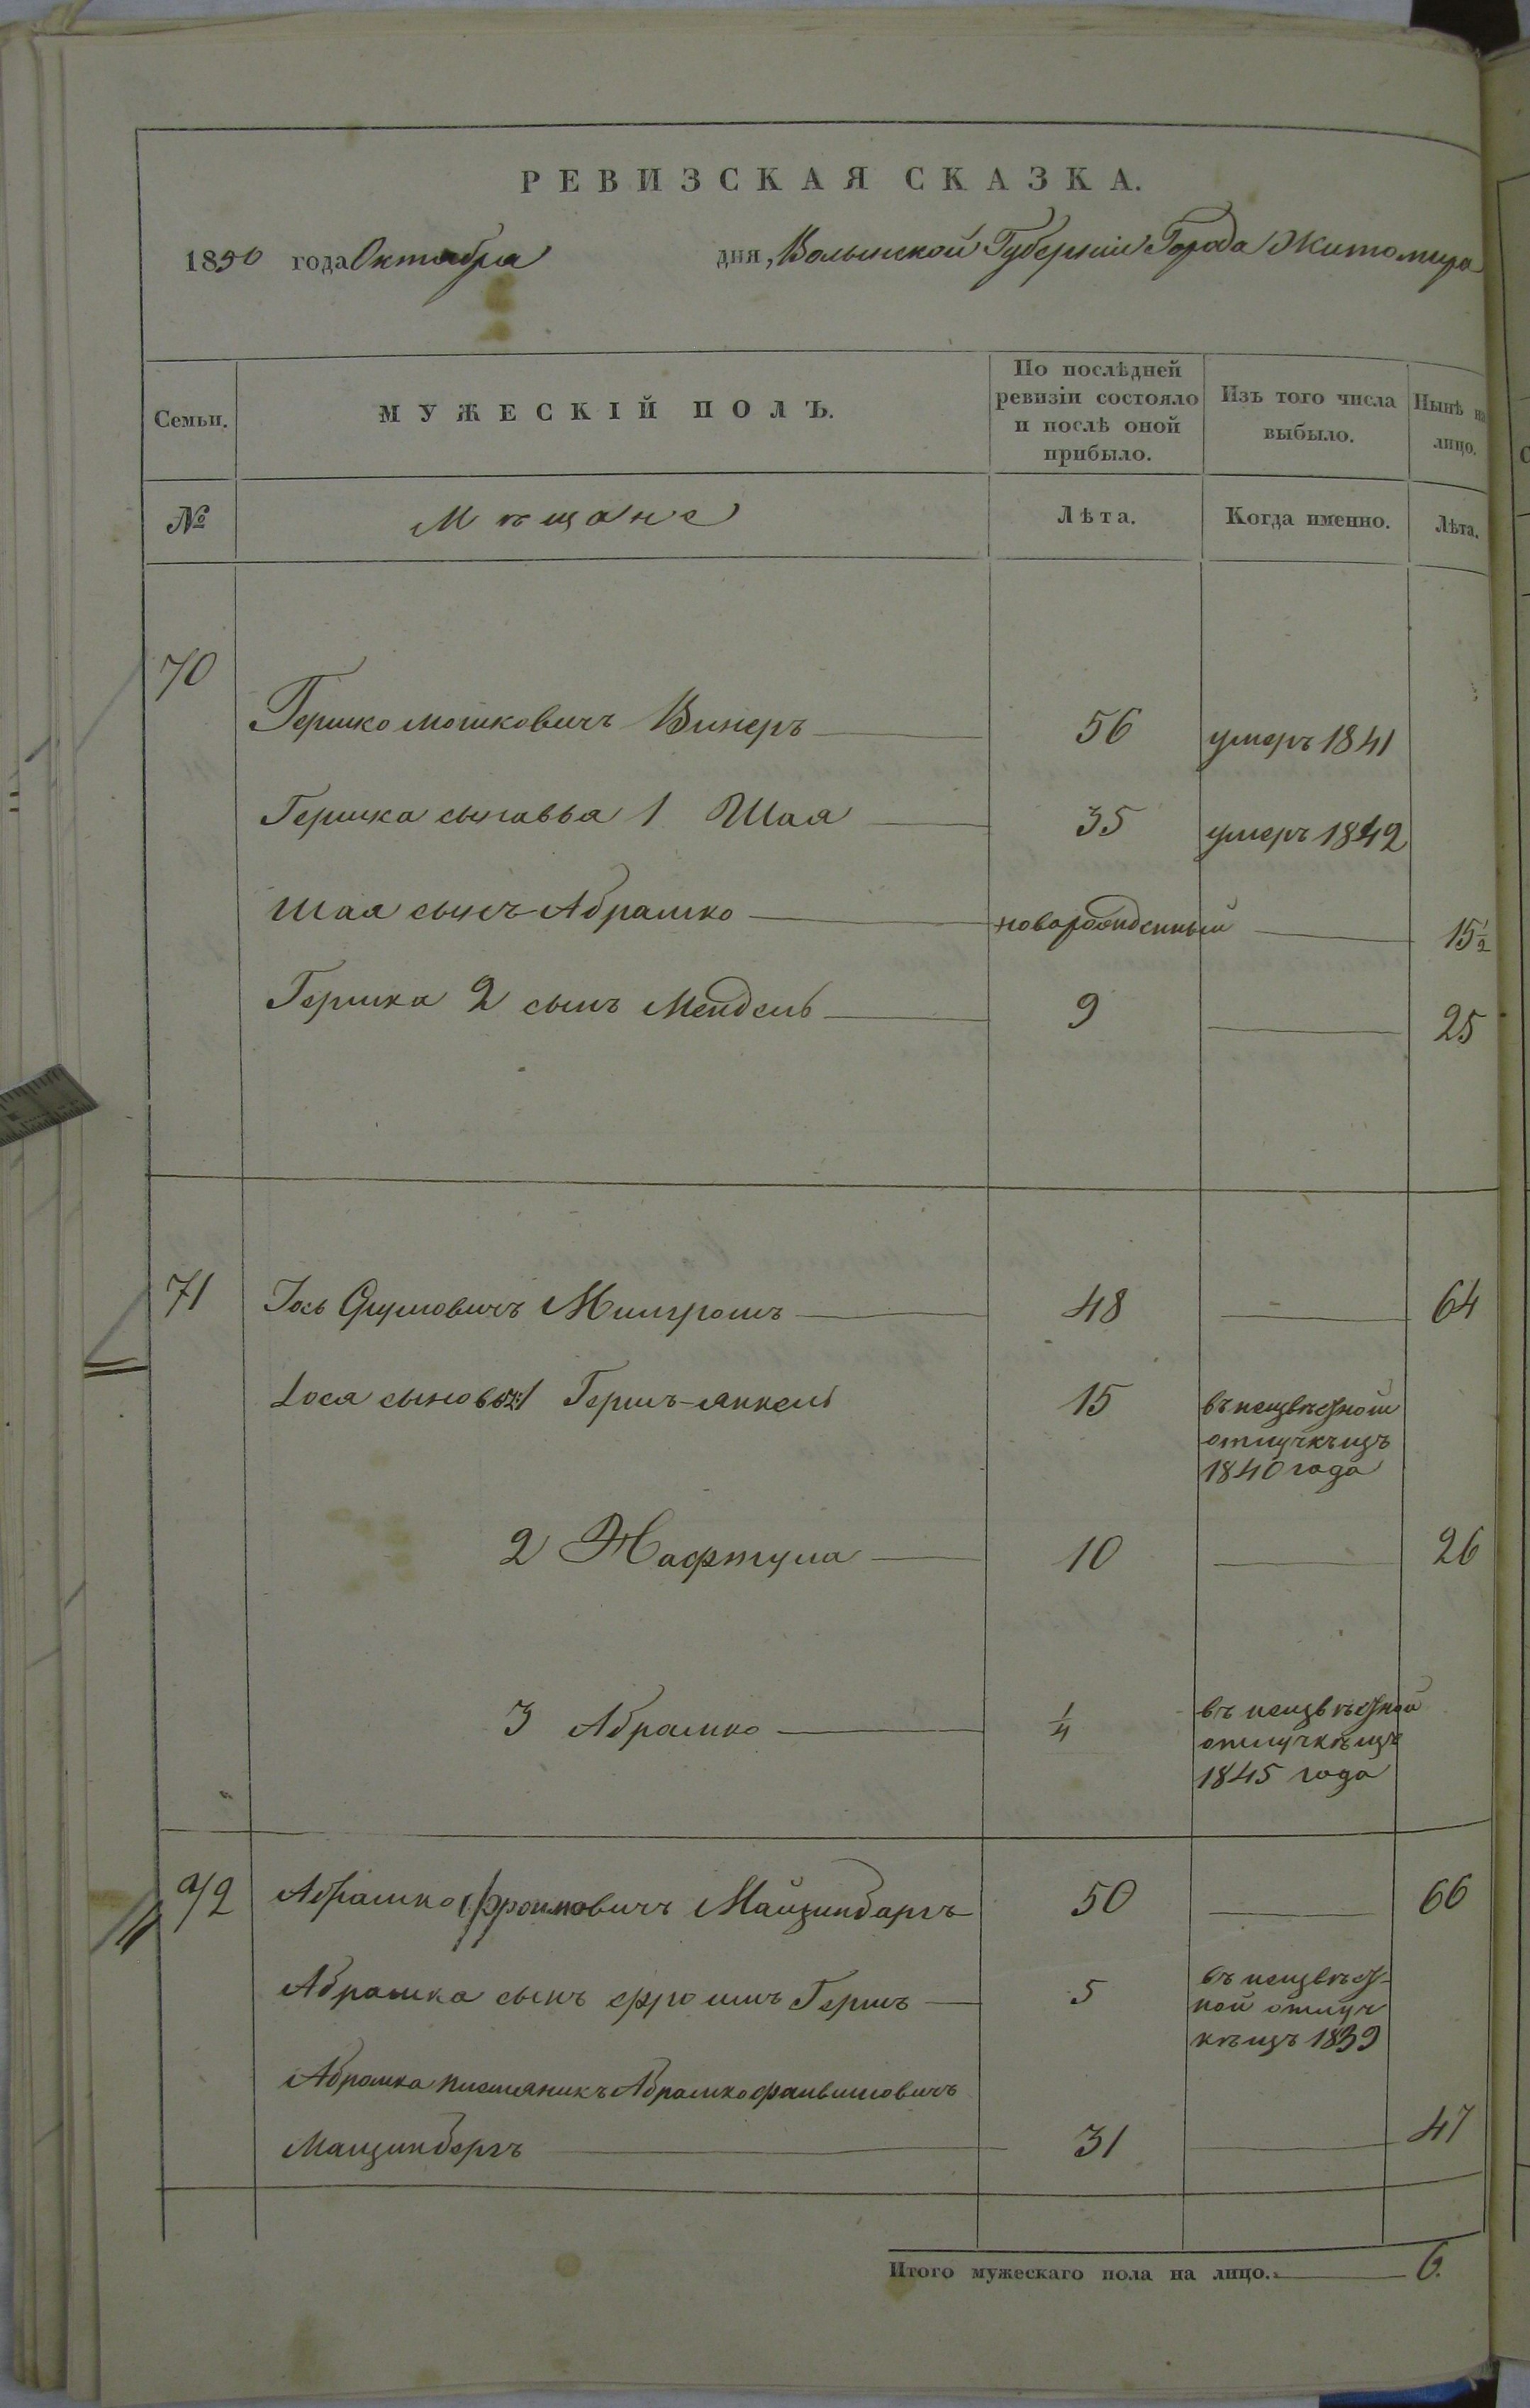 РЕВИЗСКАЯ СКАЗКА.
1850 года Октября дня, Волынской Губернiи Города Житомира
Семьи. МУЖЕСКIЙ ПОЛЪ. По послѣдней ревизiи состояло и послѣ оной прибыло. Изъ того числа выбыло. Нынѣ на лицо.
№ Мѣщане Лѣта. Когда именно. Лѣта.
70
Гершко Мошковичъ Винеръ 56 умеръ 1841
Гершка сыновья 1 Шая 35 умеръ 1842
Шая сынъ Абрамко новорожденный 15 1/2
Гершка 2 сынъ Мендель 9 25
71 Iось Сrулiовичъ Милгромъ 48 64
Iося сыновья 1 Гершъ-Янкель 15 въ неизвѣстной
отлучкѣ изъ
1840 года
2 Нафтула 10 26
3 Абрамко 1/4 въ неизвѣстной
отлучкѣ изъ
1845 года
72 Абрамко Фроимовичъ Майзинбаргъ 50 66
Абрамка сынъ Фроимъ Гершъ 5 въ неизвѣст-
ной отлуч
кѣ изъ 1839
Абрамка племяникъ Абрамко Файвишовичъ
Майзинбергъ 31 47
Итого мужескаго пола на лицо. 6.